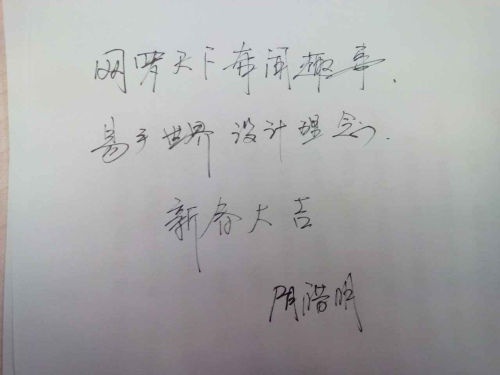 网罗天下奇闻趣事.
易于世界 设计理念.
新春大吉